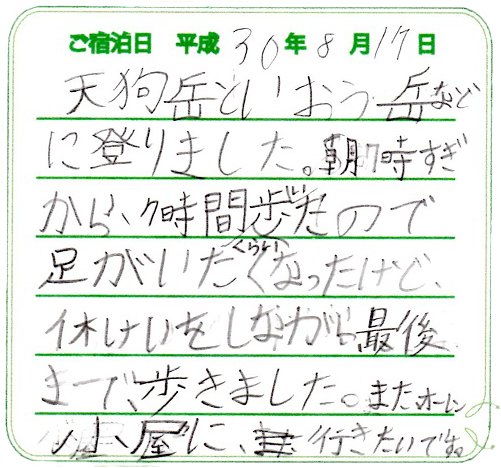 ご宿泊日 平成30年8月17日
天狗岳といおう岳など
に登りました。朝7時すぎ
から、7時間歩いたので
足がいたくなったけど、
くらい
休けいをしながら最後
まで、歩きました。またオーレン
小屋に、行きたいです。